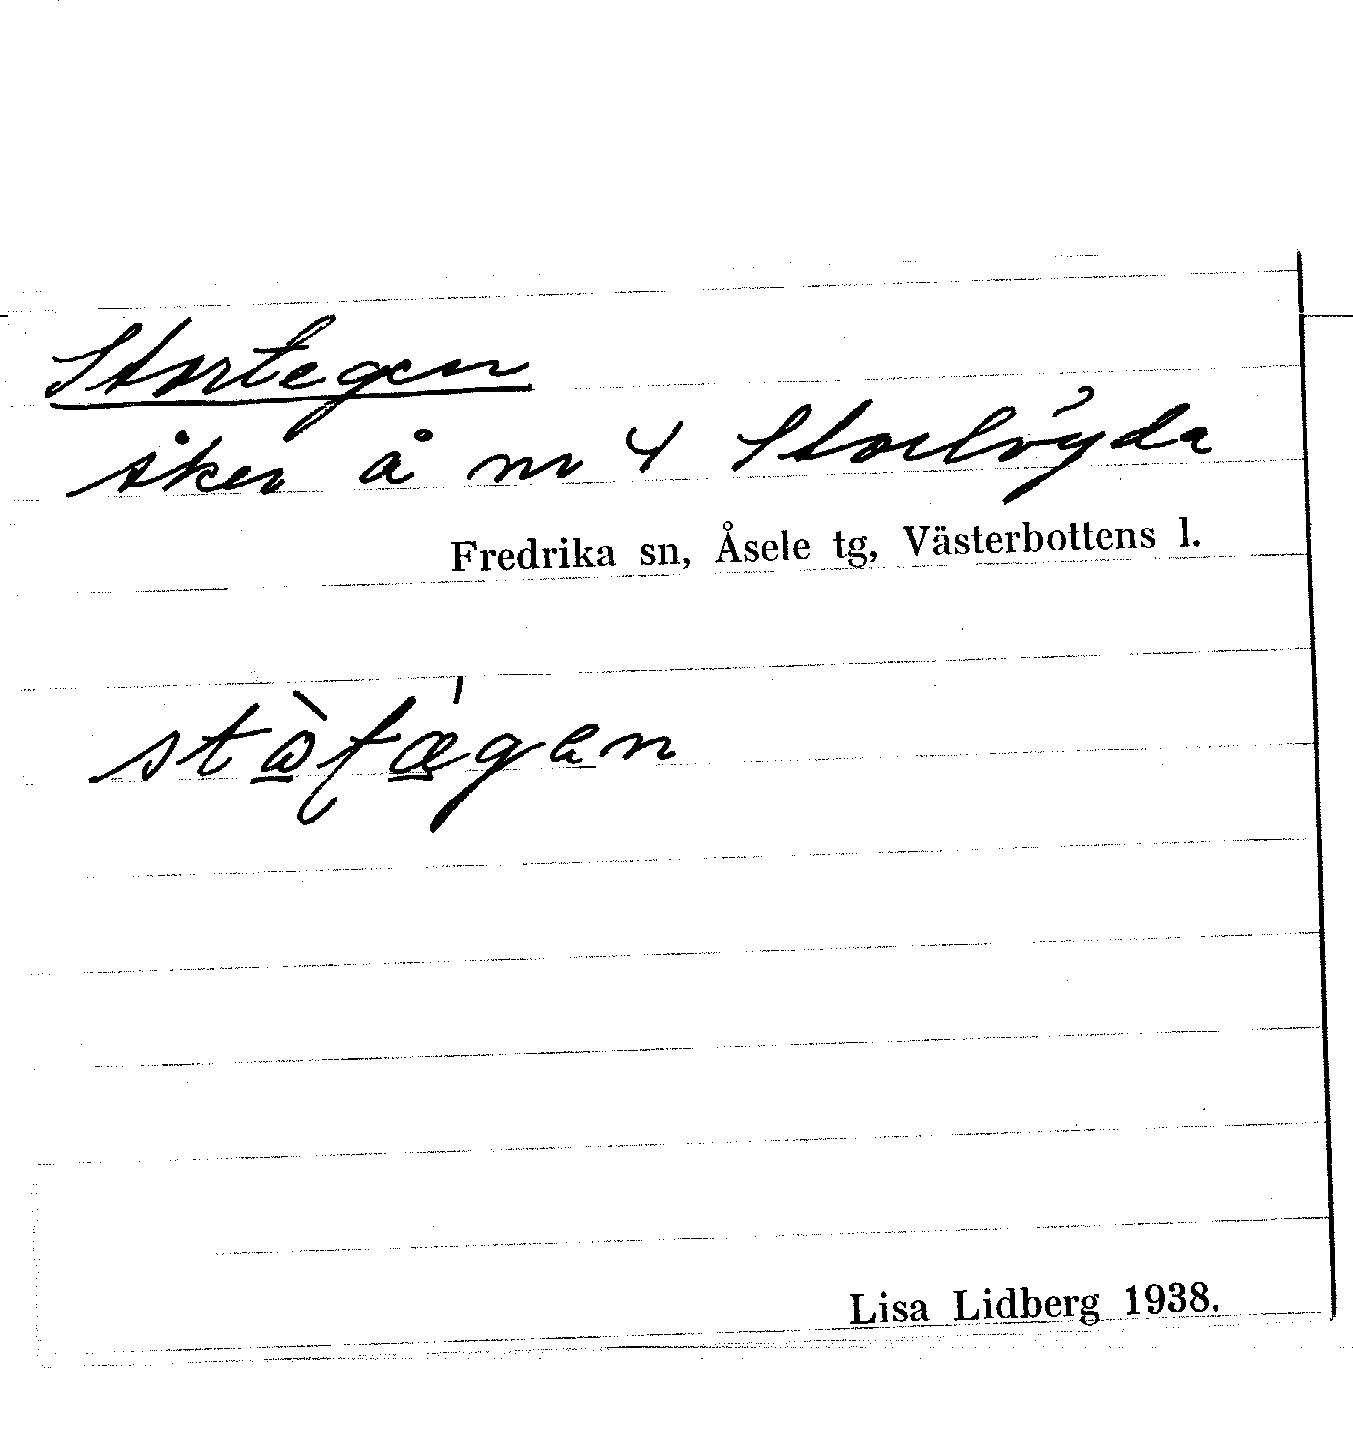 Stortegen
åker å nr 4 Storlögda
Fredrika sn, Åsele tg, Västerbottens l.
Lisa Lidberg 1938.